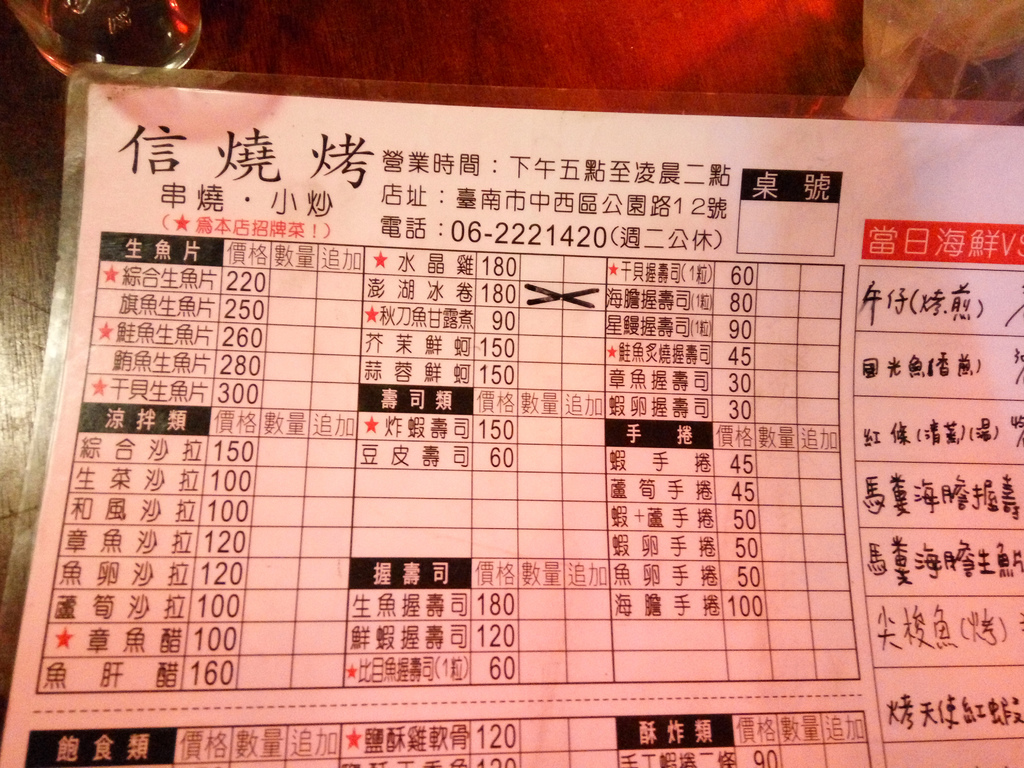 信燒烤
串燒・小炒
(★為本店招牌菜!)
營業時間:下午五點至凌晨二點
店址:臺南市中西區公園路12號
電話:06-2221420(週二公休)
桌號
生魚片 價格 數量 追加
★綜合生魚片 220
旗魚生魚片 250
★鮭魚生魚片 260
鮪魚生魚片 280
★干貝生魚片 300
涼拌類 價格 數量 追加
綜合沙拉 150
生菜沙拉 100
和風沙拉 100
章魚沙拉 120
魚卵沙拉 120
蘆筍沙拉 100
★章魚醋 100
魚肝醋 160
★水晶雞 180
澎湖冰卷 180
★秋刀魚甘露煮 90
芥茉鮮蚵 150
蒜蓉鮮蚵 150
壽司類 價格 數量 追加
★炸蝦壽司 150
豆皮壽司 60
握壽司 價格 數量 追加
生魚握壽司 180
鮮蝦握壽司 120
★比目魚握壽司(1粒) 60
★干貝握壽司(1粒) 60
海膽握壽司(1粒) 80
星鰻握壽司(1粒) 90
★鮭魚炙燒握壽司 45
章魚握壽司 30
蝦卵握壽司 30
手捲 價格 數量 追加
蝦手捲 45
蘆筍手捲 45
蝦+蘆手捲 50
蝦卵手捲 50
魚卵手捲 50
海膽手捲 100
當日海鮮VS
午仔(烤煎)
國光魚(香煎)
紅條(清蒸)(湯)
馬糞海膽握壽
馬糞海膽生魚片
尖梭魚(烤)
烤天使紅蝦
飽食類 價格 數量 追加
★鹽酥雞軟骨 120
酥炸類 價格 數量 追加
手工蝦捲二條 90